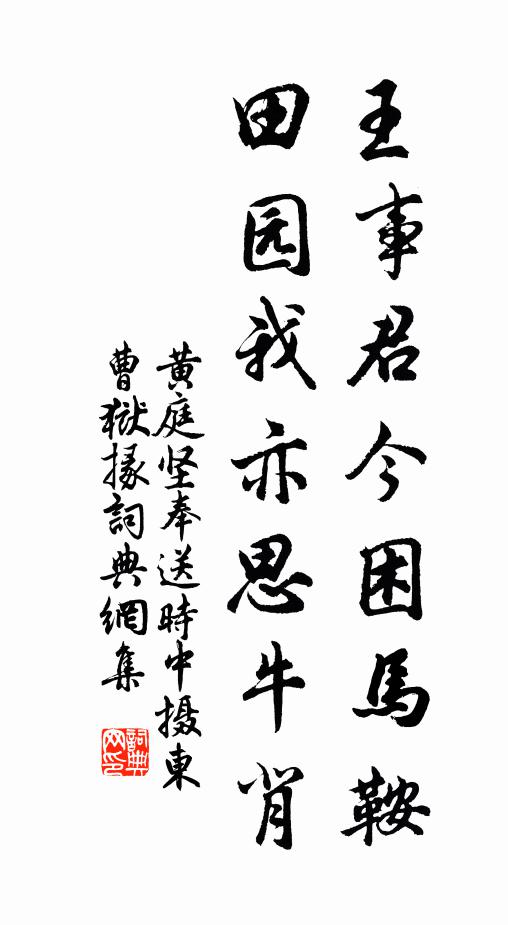 王事君今困馬鞍
田园我亦思牛背
黄庭坚奉送時中摄東
曹獄掾詞典網集
詞典网印